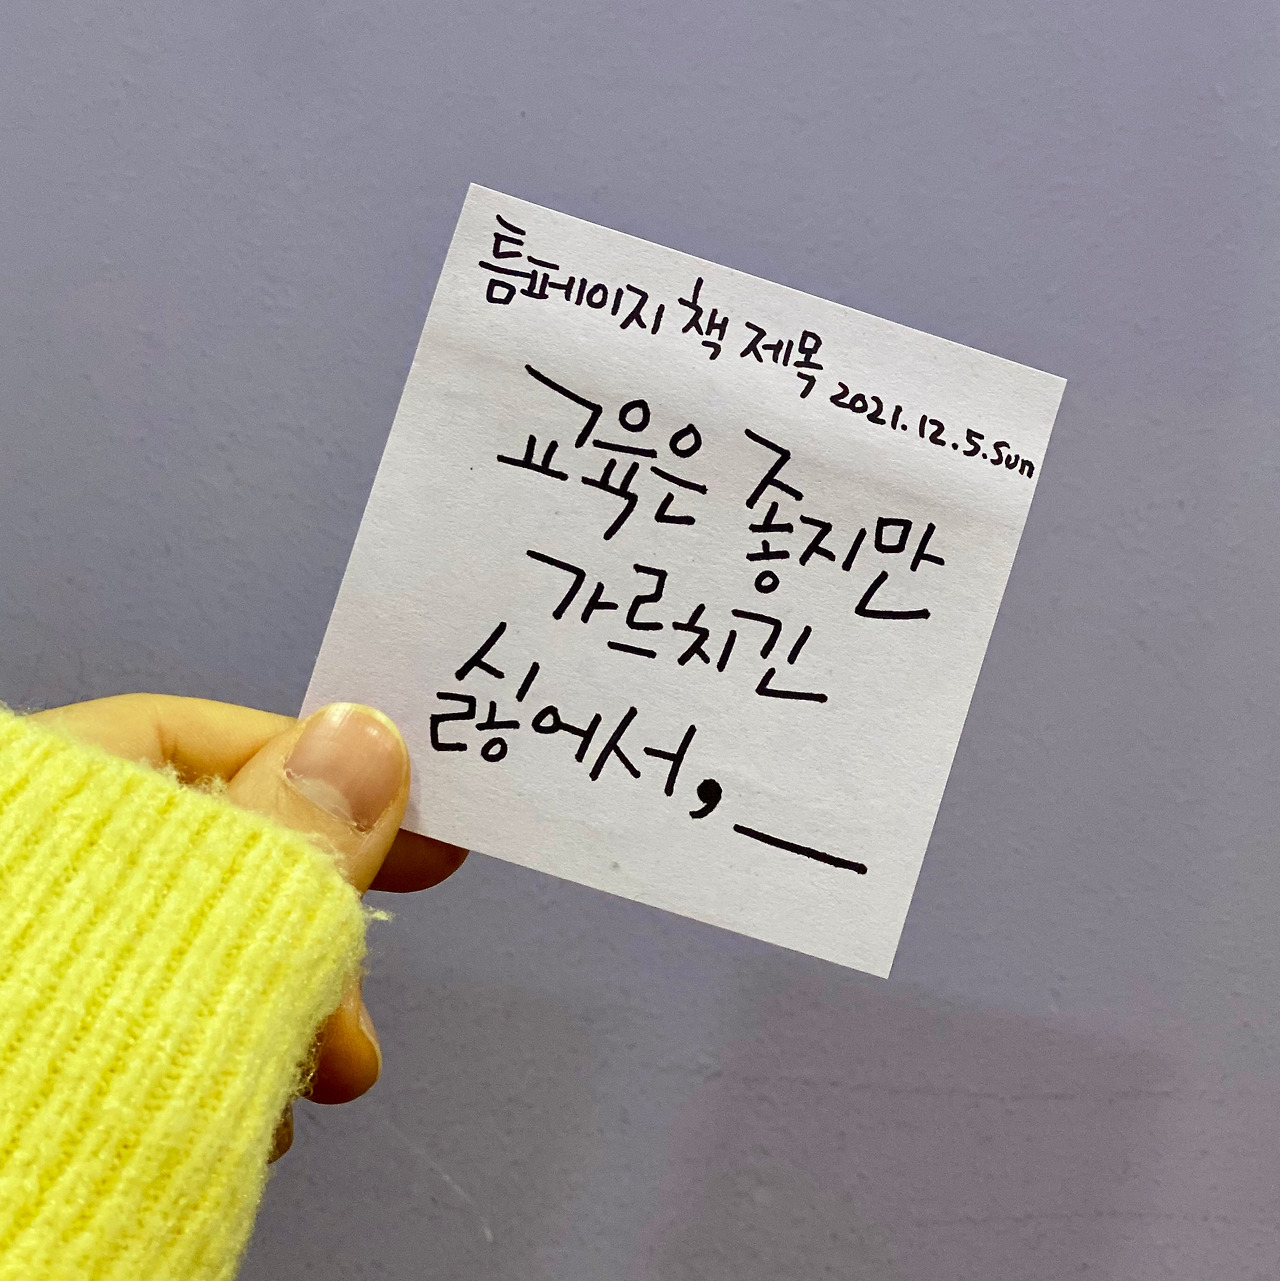 틈페이지 책 제목 2021.12.5.Sun
교육은 좋지만
가르치긴
싫어서, _